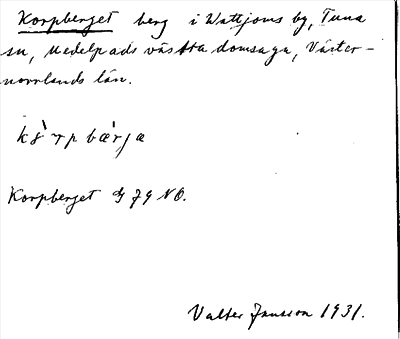 Korpberget berg i Wattjoms by, Tuna
sn, Medelpads västra domsaga, Väster-
norrlands län.
Korpberget G 79 NO.
Valter Jansson 1931.